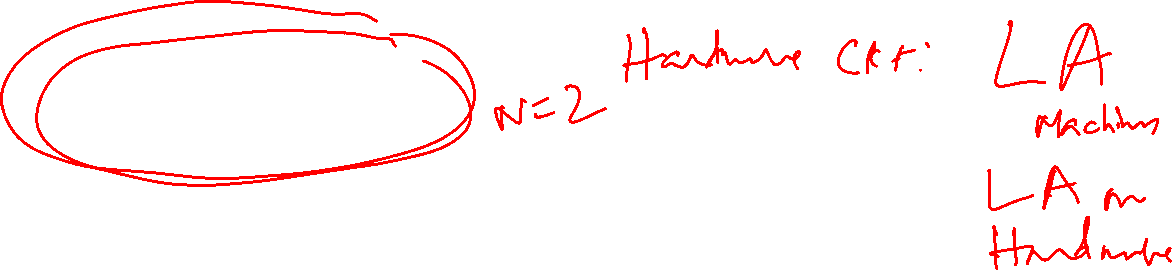 N=2
Hardware CKT:
LA
Machines
LA on
Hardware